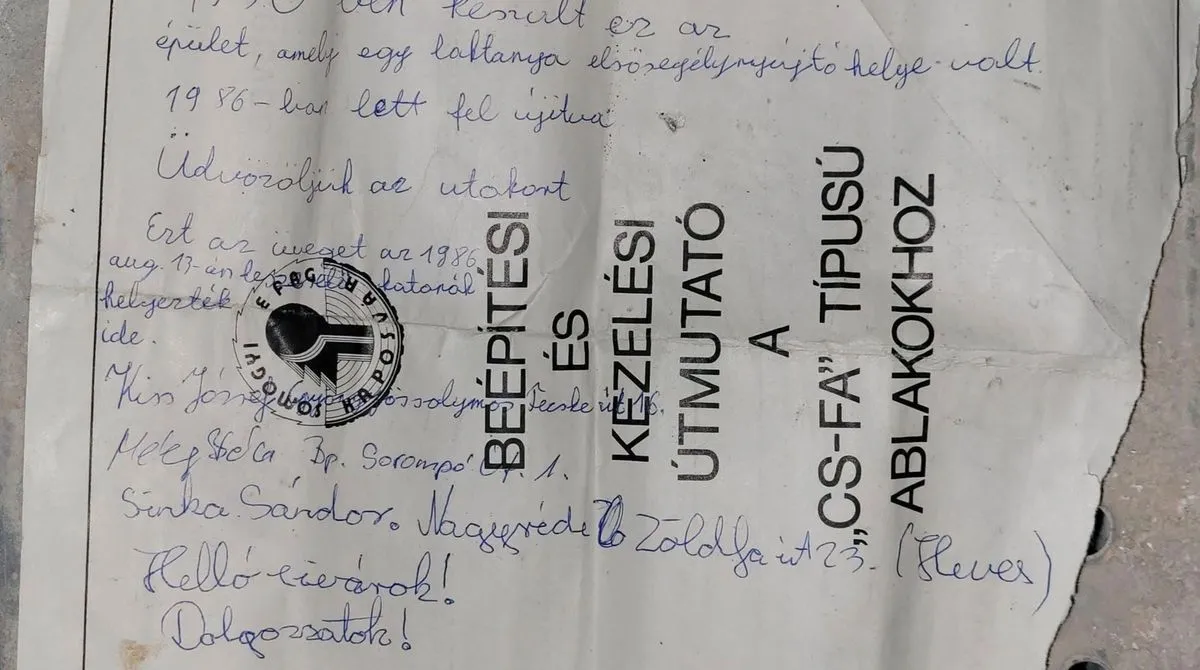 ben készült ez az
épület, amely egy laktanya elsősegélynyújtó helye volt.
1986-ban lett fel újítva
Üdvözöljük az utókort
Ezt az üveget az 1986
aug. 13-án leszerelő katonák
helyezték
ide.
Kiss József Gyöngyössolymos Fecske út 16.
Meleg Béla Bp. Sorompó u. 1.
Sinka Sándor. Nagyréde Zöldfa út 23. (Heves)
Helló civárok!
Dolgozzatok!
SOMOGYI
KAPOSVÁR
BEÉPÍTÉSI
ÉS
KEZELÉSI
ÚTMUTATÓ
A
„CS-FA” TÍPUSÚ
ABLAKOKHOZ